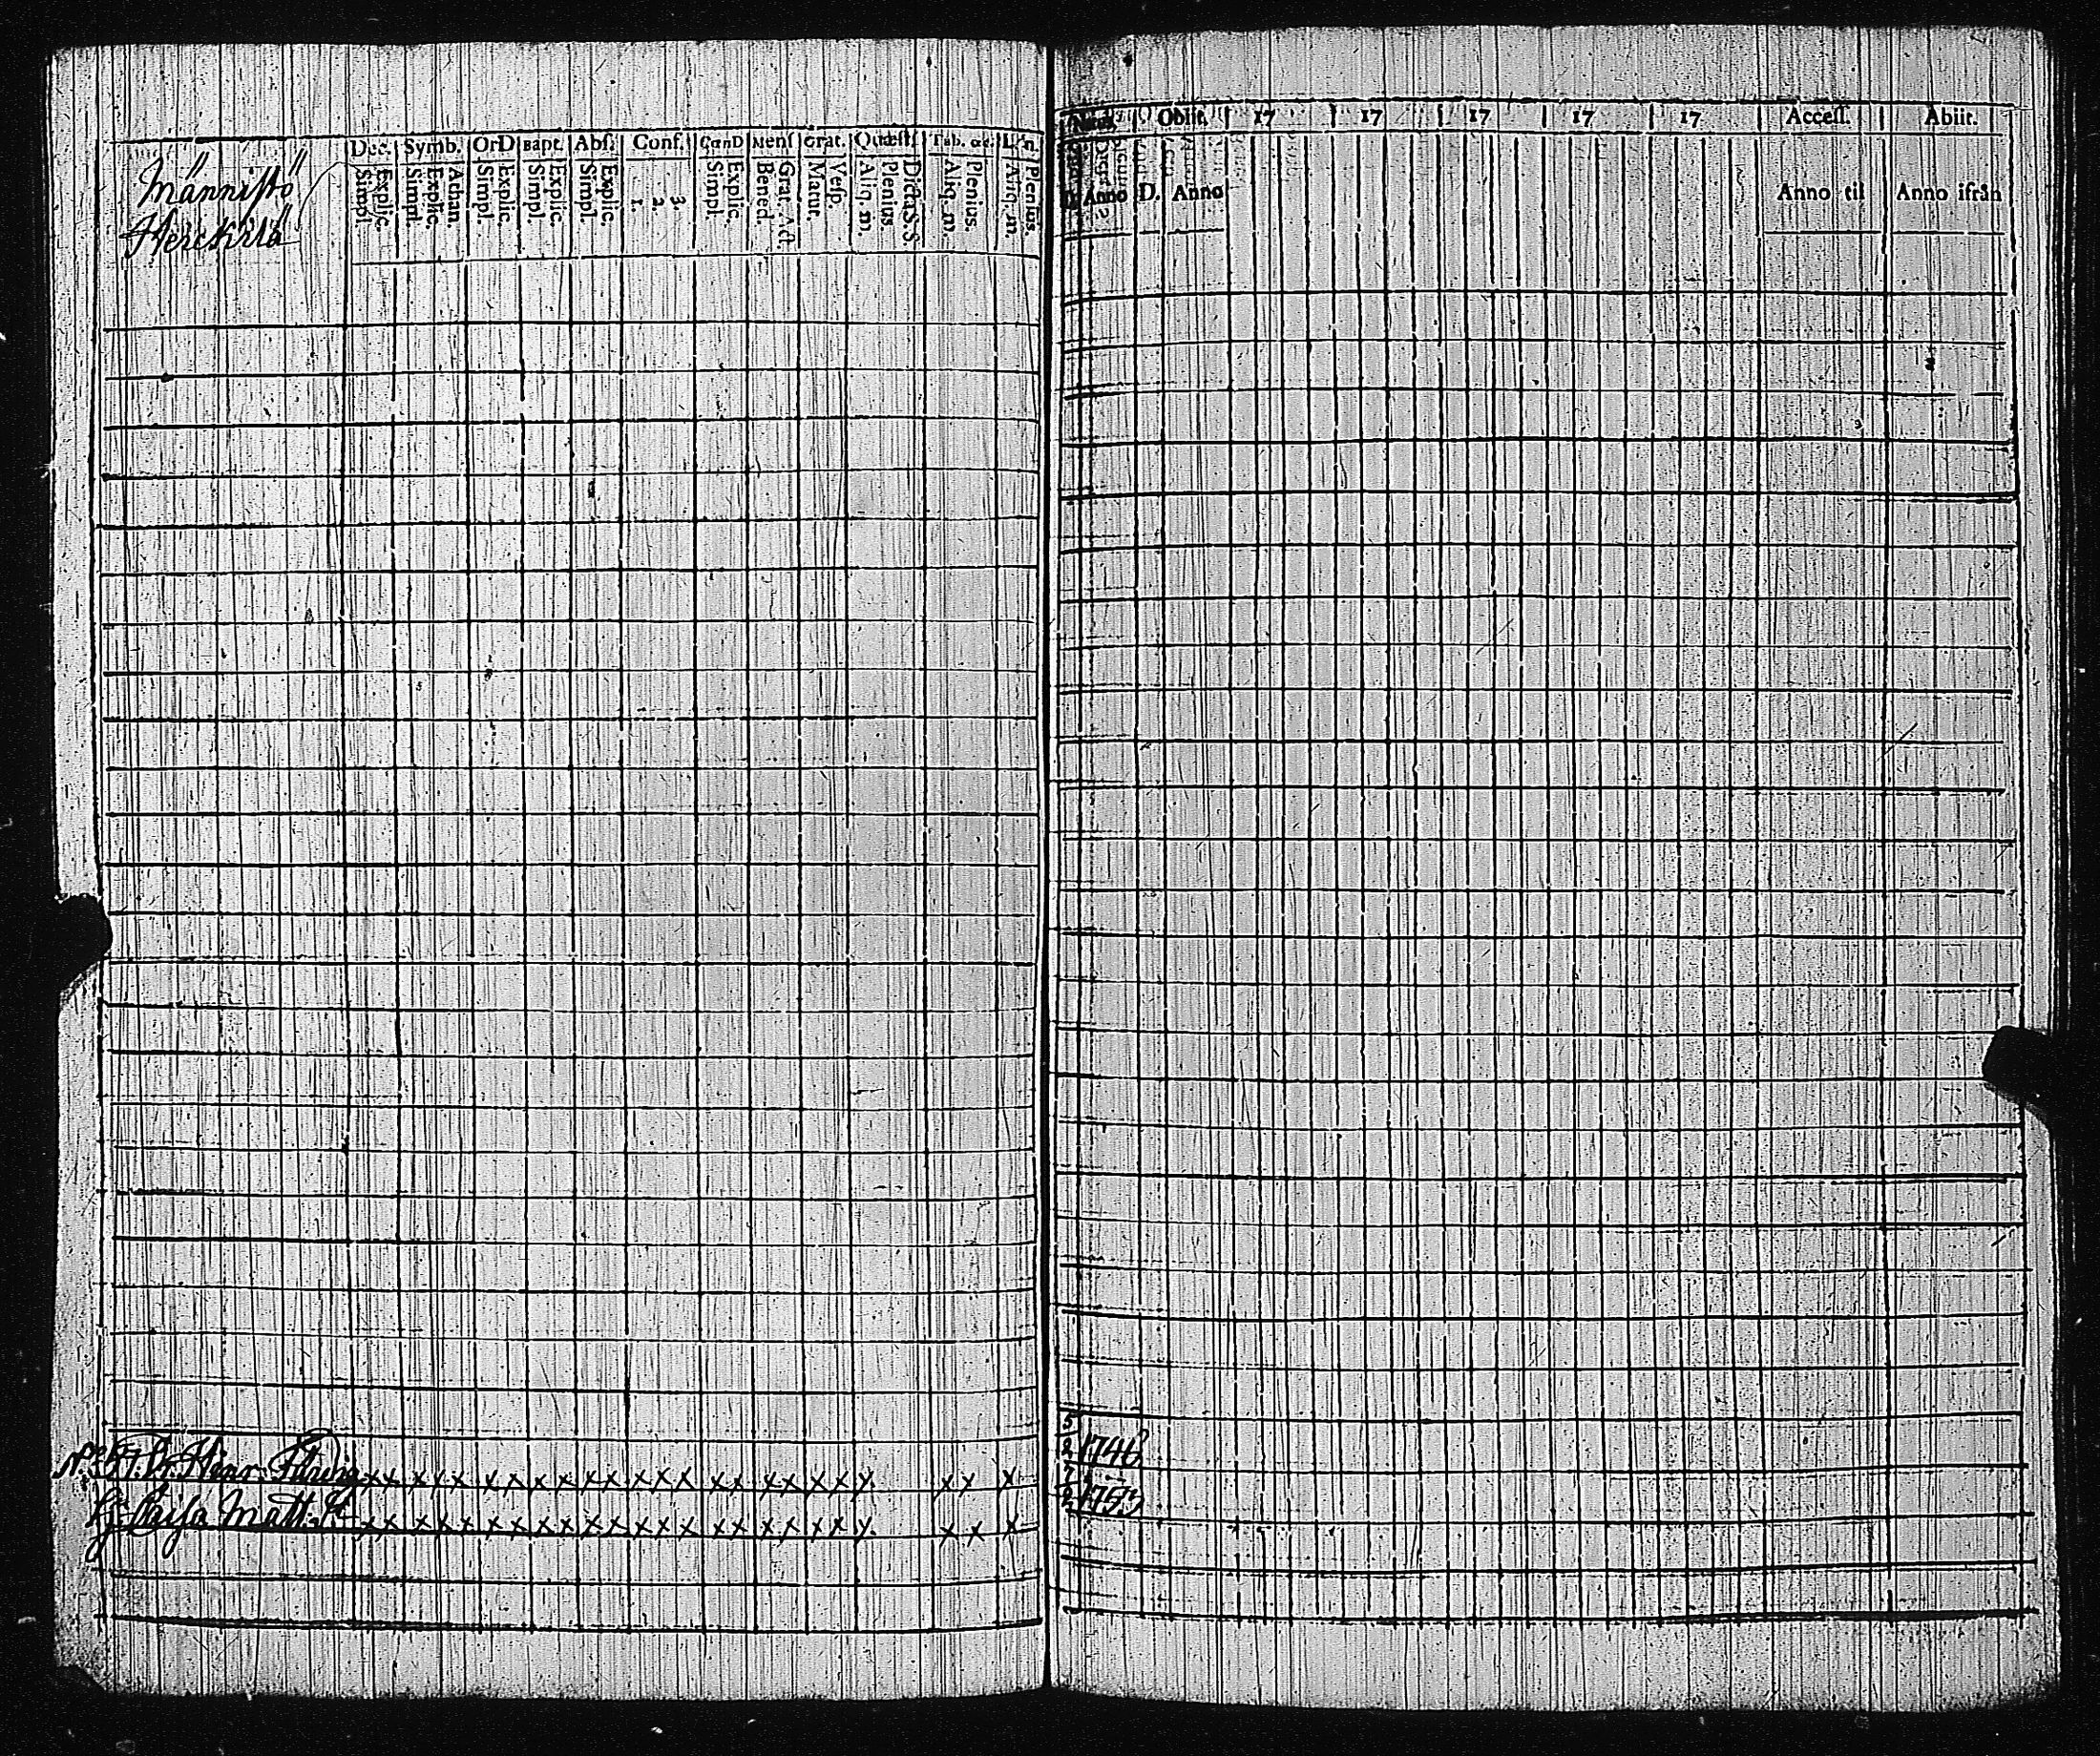 Männistö
Herckirlä
Dec. Symb. OrD Bapt. Abſ. Conf. CœnD Menſ Grat. Quæſt. Tab. œc.
Explic. Simpl. Athan. Explic. Simpl. Explic. Simpl. Explic. Simpl. Explic. Simpl. 1. 2. 3. Explic. Simpl. Grat. Act. Bened. Veſp. Matut. Dicta S.S. Plenius Aliq. m. Plenius. Aliq. m. Plenius. Aliq. m.
Obiit. 17 17 17 17 17 Acceſſ. Abiit.
Anno D. Anno Anno til Anno ifrån
Hinr.
x x x x x x x x x x x x x x x x x x x x x x x x
5 2 1746
Caisa Matt. dr
x x x x x x x x x x x x x x x x x x x x x x x x
7 2 1753